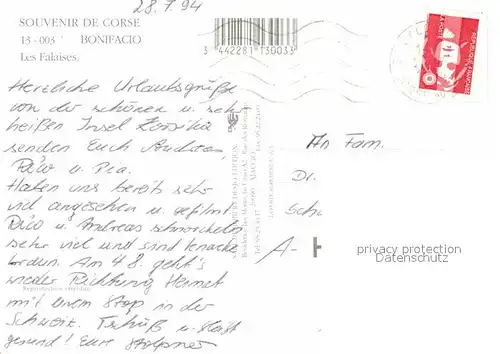 28.7.94
SOUVENIR DE CORSE
13 - 003 BONIFACIO
Les Falaises.
3 442281 130033
Herzliche Urlaubsgrüße
von der schönen u. sehr
heißen Insel Korsika
senden Euch Andreas,
u. Pia.
Haben uns bereits sehr
viel angesehen u. gefilmt
u. Andreas schnorcheln
sehr viel und sind
Am 4.8. geht's
wieder Richtung Heimat
mit einem Stop in der
Schweiz. Tschüß u. bleibt
gesund! Eure
Reproduction interdite
An Fam.
Dr.
Sch
A-
privacy protection
Datenschutz